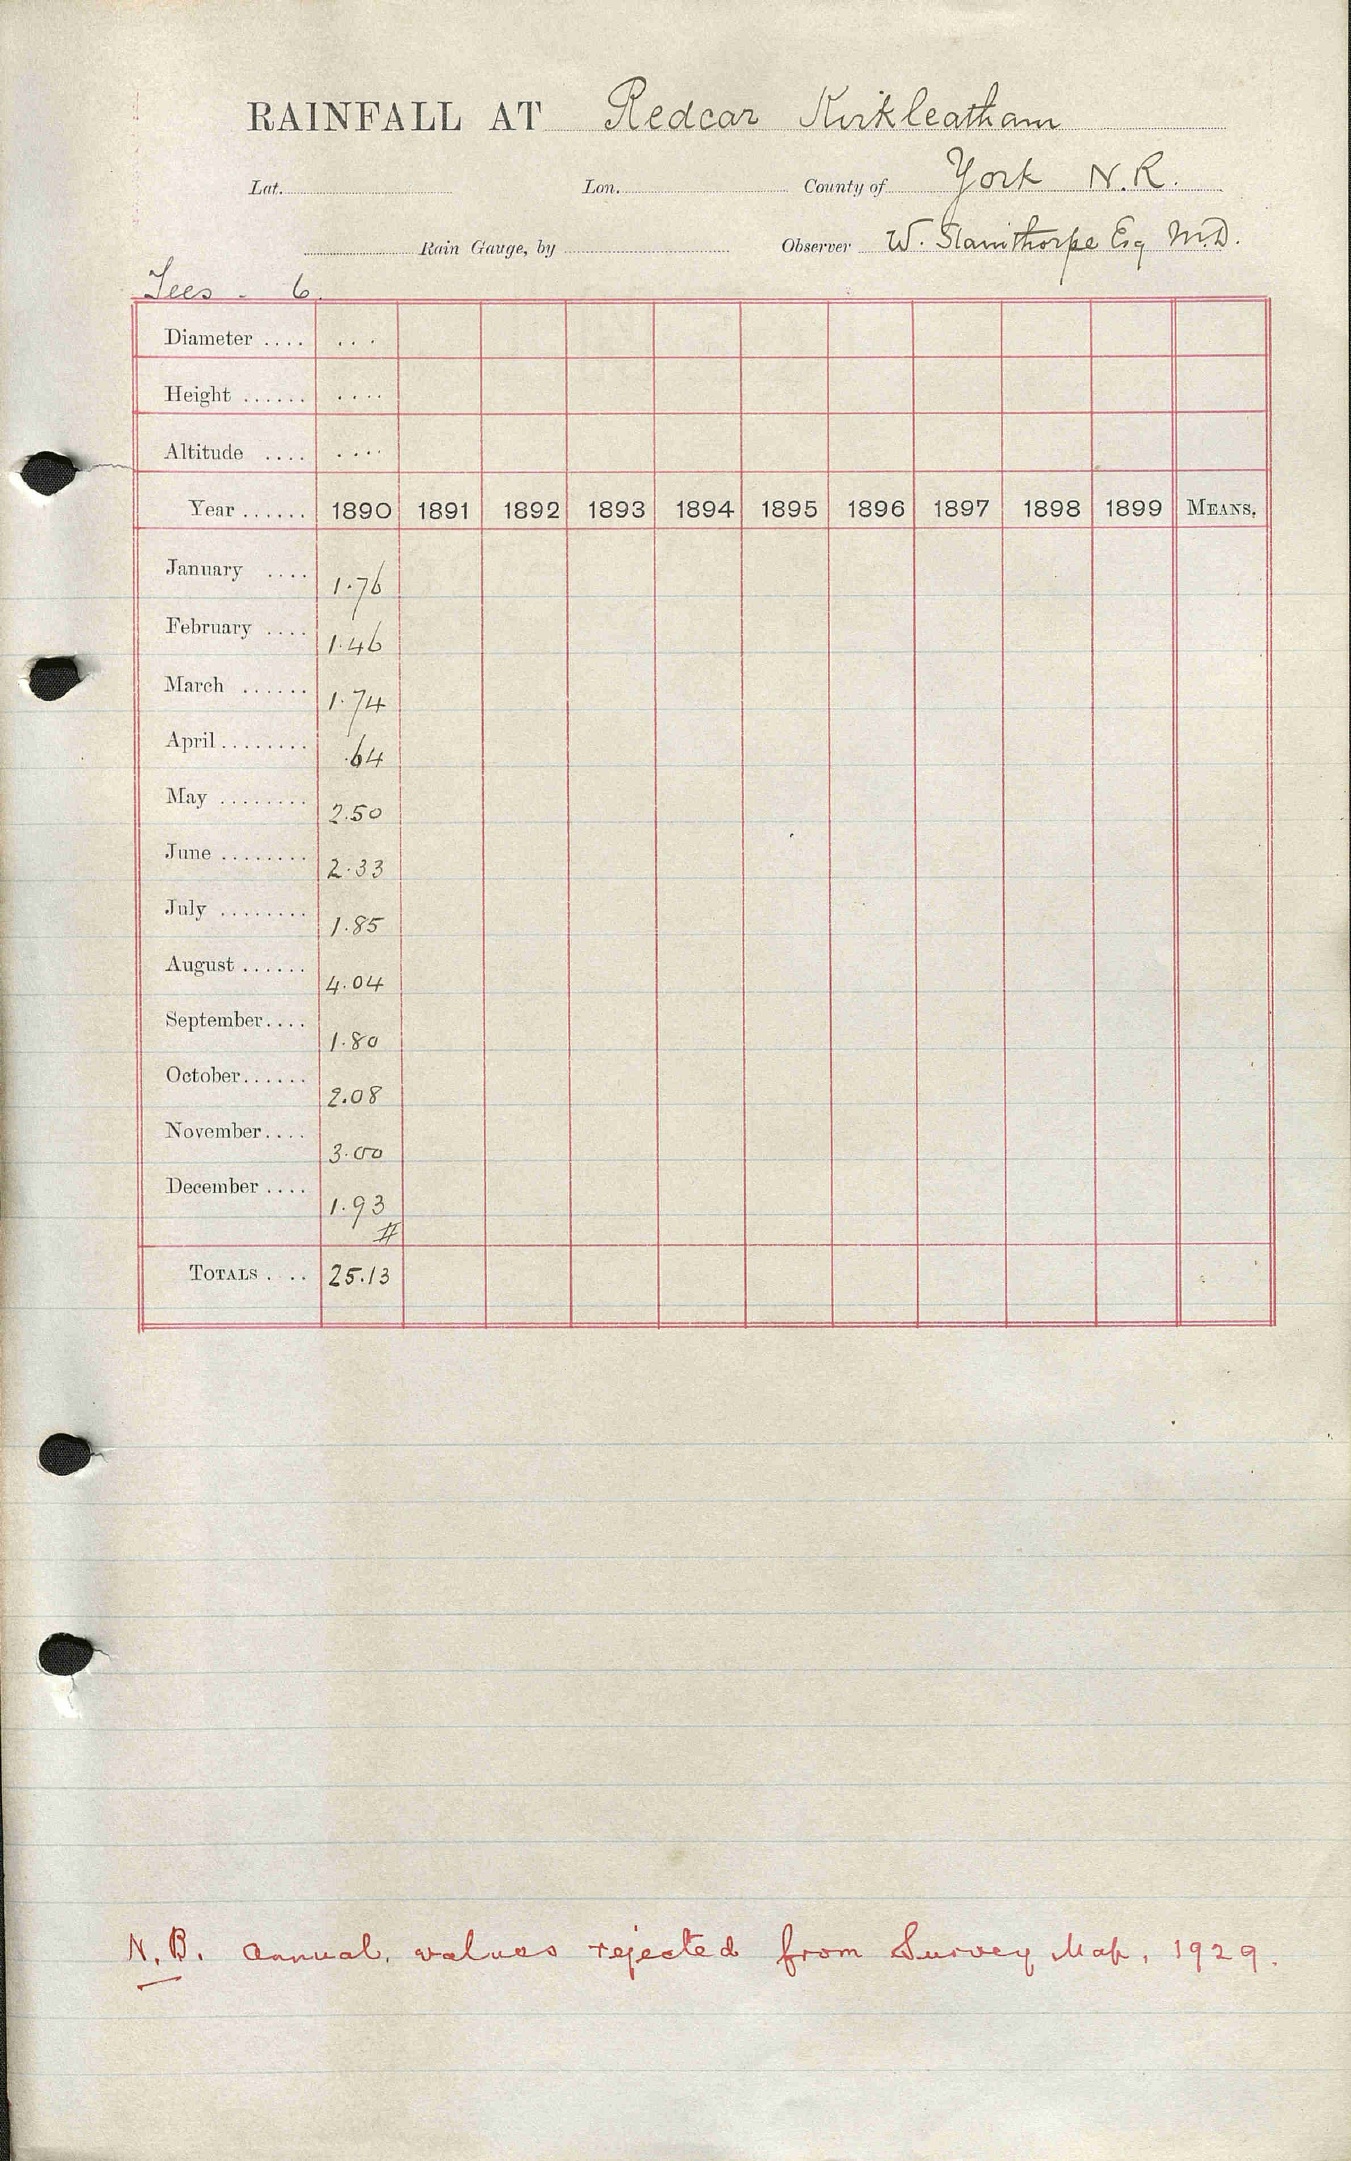 RAINFALL AT Redcar Kirkleatham
Lat. Lon. County of York N.R.
Rain Gauge, by Observer W. Stanithorpe Esq M.D.
Tees - 6.
Diameter .... ...
Height ...... ....
Altitude .... ....
Year ...... 1890 1891 1892 1893 1894 1895 1896 1897 1898 1899 MEANS.
January .... 1.76
February .... 1.46
March ...... 1.74
April ........ .64
May ........ 2.50
June ........ 2.33
July ........ 1.85
August ...... 4.04
September .... 1.80
October ...... 2.08
November .... 3.00
December .... 1.93
#
TOTALS .... 25.13
N.B. annual values rejected from Survey Map, 1929.